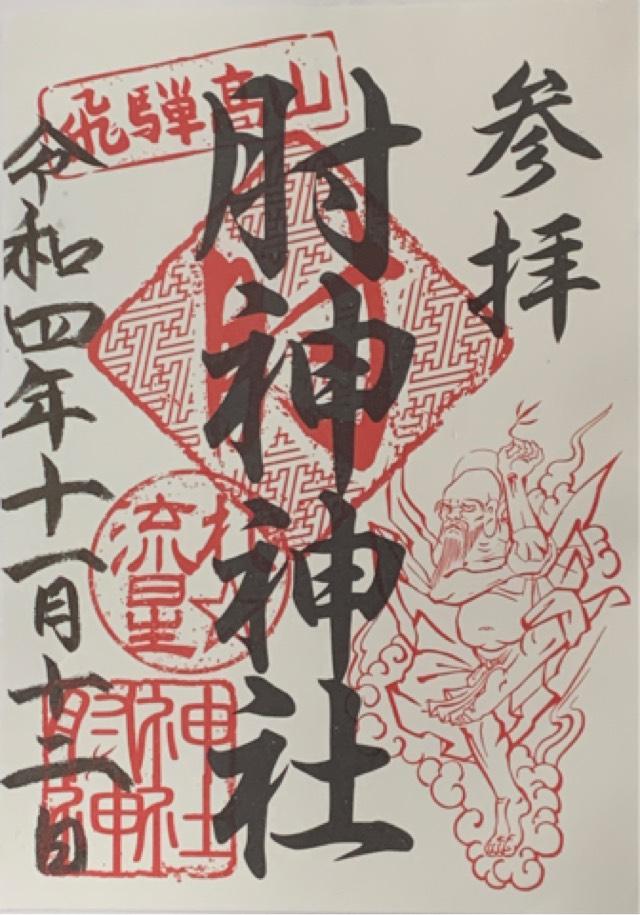 飛騨高山
参拝
肘神神社
令和四年十一月十二日
肘
流星
肘神
神社